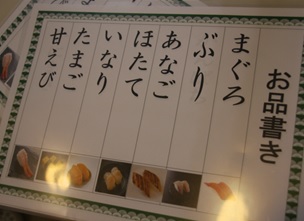 お品書き
まぐろ
ぶり
あなご
ほたて
いなり
たまご
甘えび